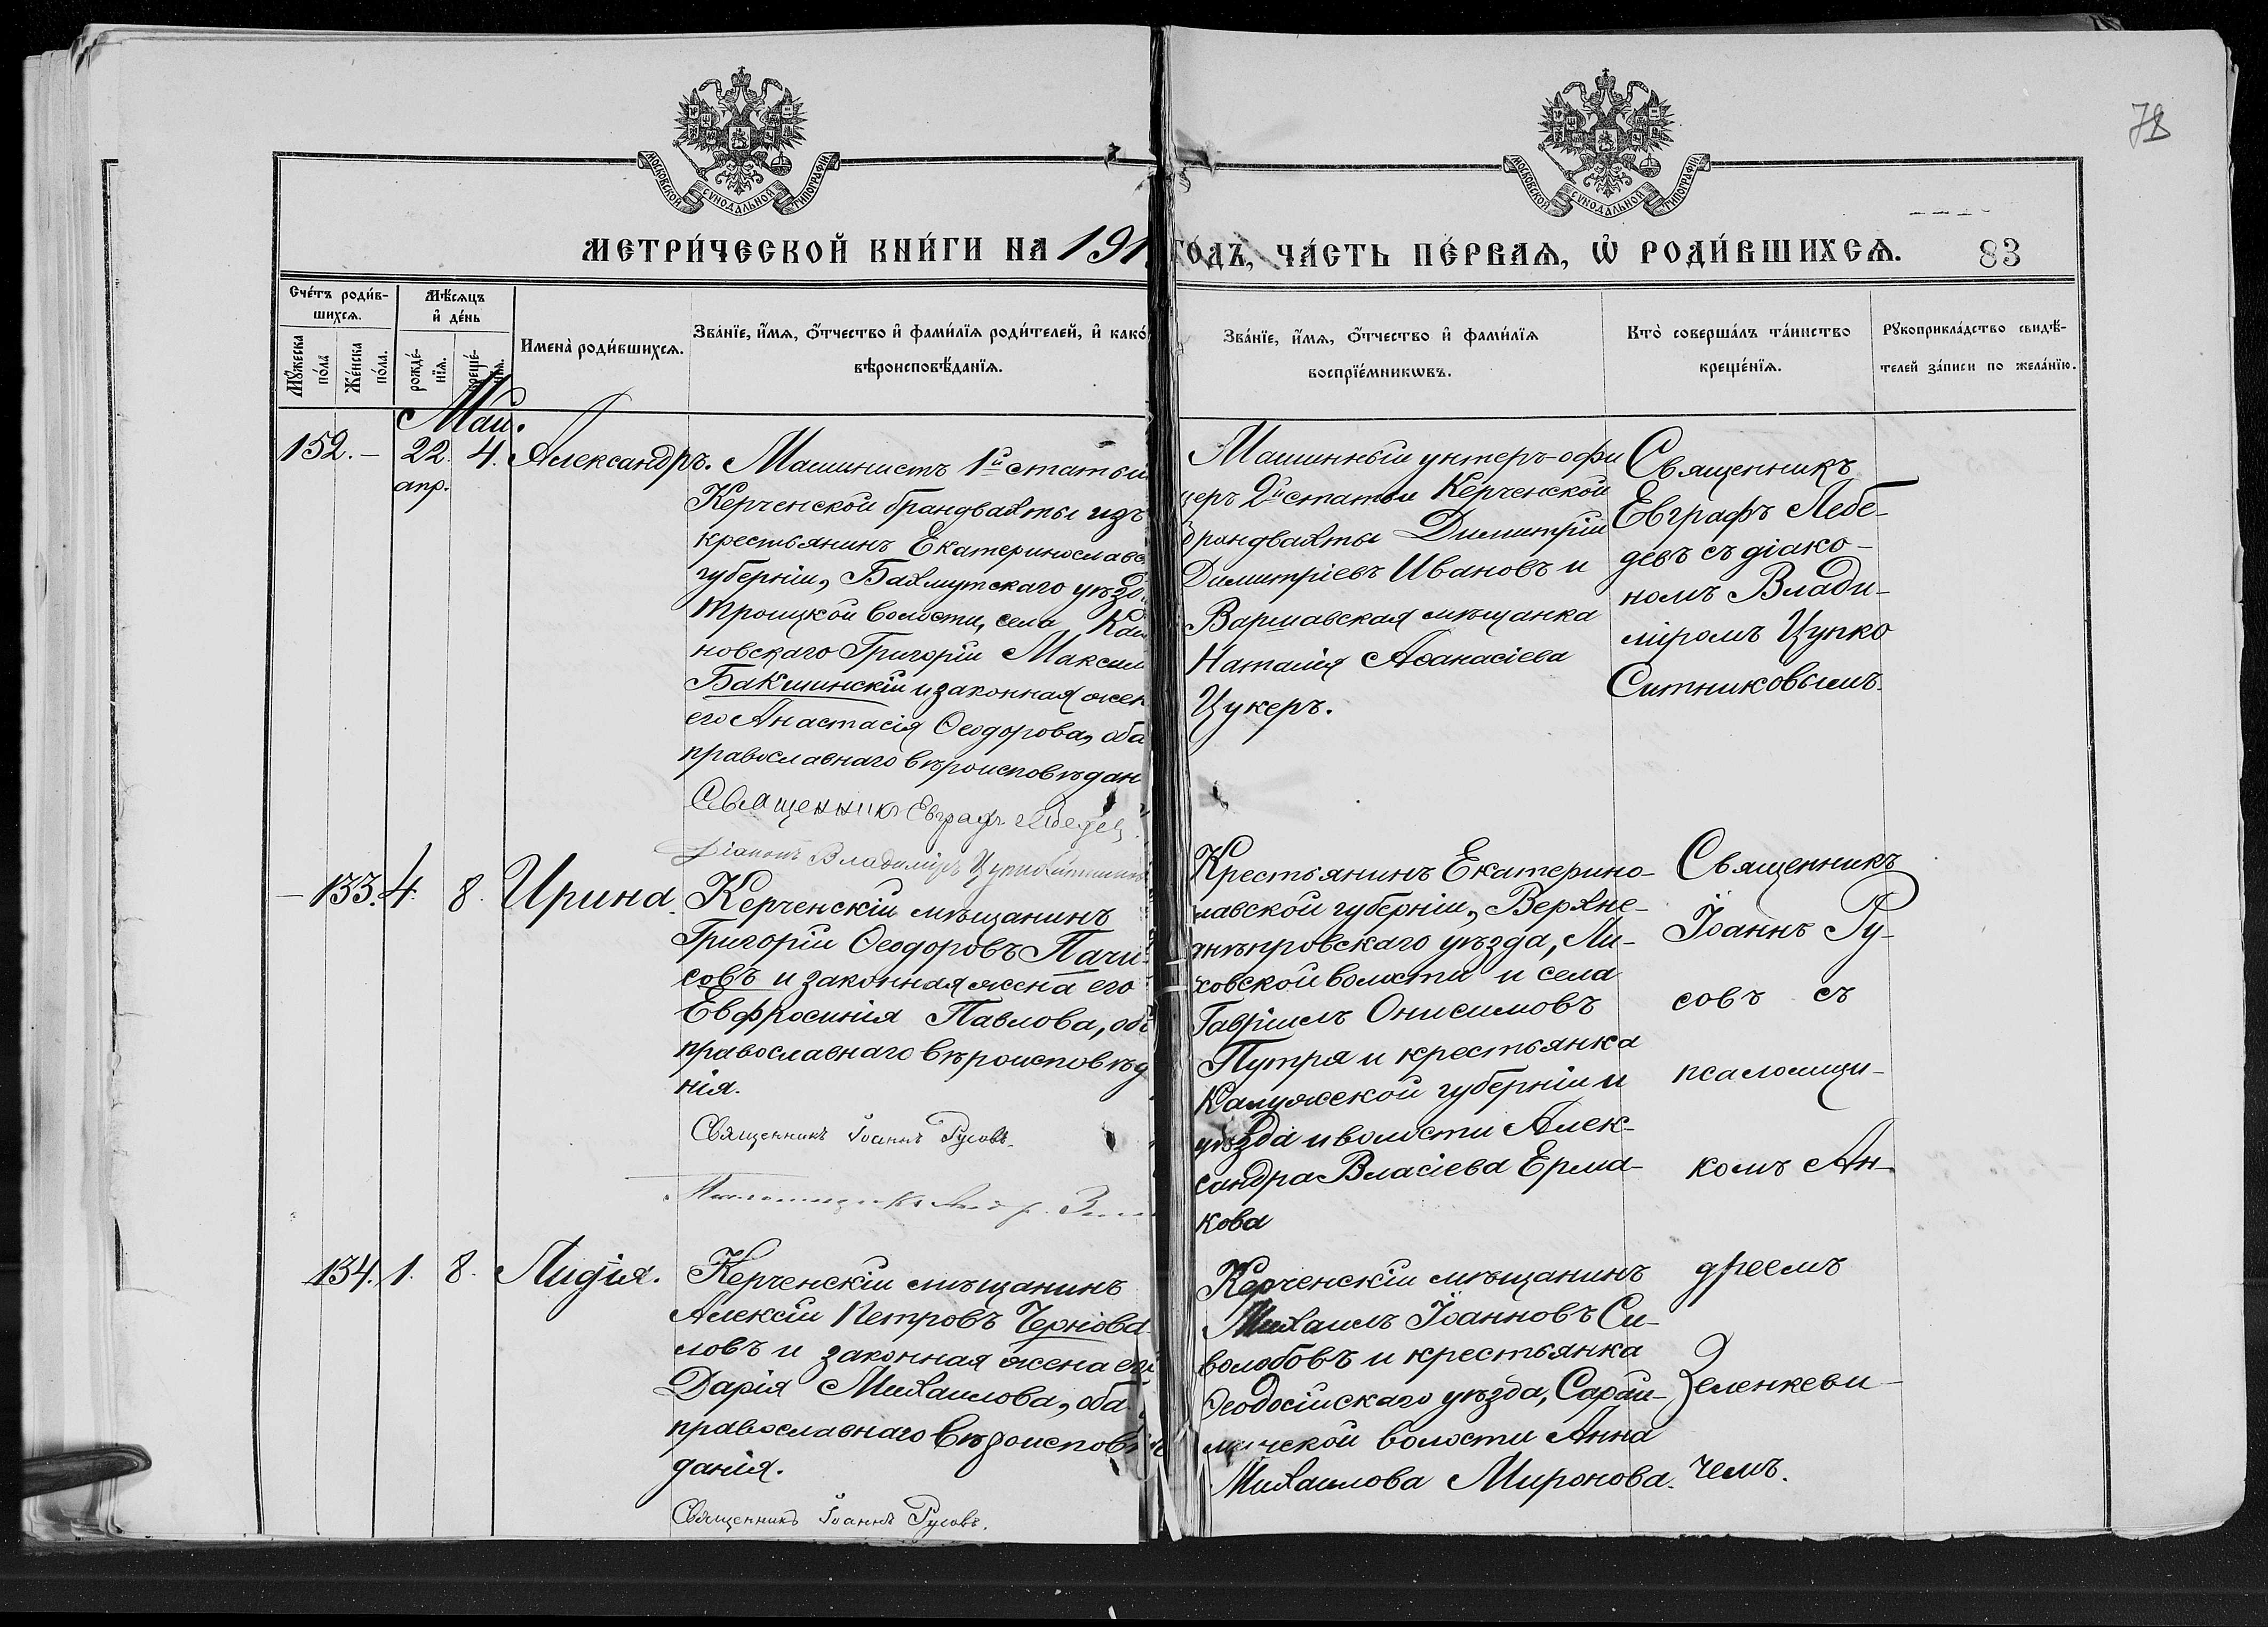 МОСКОВСКОЙ СѴНОДАЛЬНОЙ ТИПОГРАФІИ
МОСКОВСКОЙ СѴНОДАЛЬНОЙ ТИПОГРАФІИ
78
МЕТРИ́ЧЕСКОЙ КНИ́ГИ НА 191
ГО́ДЪ, ЧА́СТЬ ПЕ́РВАѦ, Ѡ҆ РОДИ́ВШИХСѦ.
83
Сче́тъ роди́в-
шихсѧ.
Мꙋ́жеска по́лꙋ
Же́нска по́ла.
Мѣ́сѧцъ
и҆ де́нь
рожде́-
нїѧ.
креще́-
нїѧ.
Имена̀ роди́вшихсѧ.
Зва́нїе, и҆́мѧ, ѻ҆́тчество и҆ фами́лїѧ роди́телей, и҆ како́
вѣроисповѣ́данїѧ.
Зва́нїе, и҆́мѧ, ѻ҆́тчество и҆ фами́лїѧ
воспрїе́мникѡвъ.
Кто̀ соверша́лъ та́инство
креще́нїѧ.
Рꙋкоприкла́дство свидѣ́-
телей за́писи по жела́нїю.
Май.
152. – 22. 4. Александръ.
апр.
Машинистъ 1й статьи
Керченской брандвахты изъ
крестьянинъ Екатеринославс
губерніи, Бахмутскаго уѣзд
Троицкой волости, села
новскаго Григорій Максим
Бакшинскій и законная жен
его Анастасія Ѳеодорова, оба
православнаго вѣроисповѣдан
Священникъ Евграфъ Лебедев
Діаконъ Владиміръ
Машинный унтеръ-офи
церъ 2й статьи Керченской
брандвахты Димитрій
Димитріевъ Ивановъ и
Варшавская мѣщанка
Наталія Аѳанасіева
Цукеръ.
Священникъ
Евграфъ Лебе-
девъ съ діако-
номъ Влади-
міромъ Цупко
Ситниковымъ.
– 133. 4. 8. Ирина.
Керченскій мѣщанинъ
Григорій Ѳеодоровъ Пачи
совъ и законная жена его
Евфросинія Павлова, об
православнаго вѣроисповѣд
нія.
Священникъ Іоаннъ Русовъ.
Крестьянинъ Екатерино-
лавской губерніи, Верхне-
днѣпровскаго уѣзда, Ли-
ховской волости и села
Гавріилъ Онисимовъ
Путря и крестьянка
Калужской губерніи и
уѣзда и волости Алек-
сандра Власіева Ерма-
кова
Священникъ
Іоаннъ Ру-
совъ съ
псаломщи-
комъ Ан-
дреемъ
Зеленкеви-
чемъ.
134. 1. 8. Лидія.
Керченскій мѣщанинъ
Алексій Петровъ Чернова
ловъ и законная жена его
Дарія Михаилова, оба
православнаго вѣроисповѣ
данія.
Священникъ Іоаннъ Русовъ.
Керченскій мѣщанинъ
Михаилъ Іоанновъ Си-
волобовъ и крестьянка
Ѳеодосійскаго уѣзда, Сарай-
минской волости Анна
Михаилова Миронова.